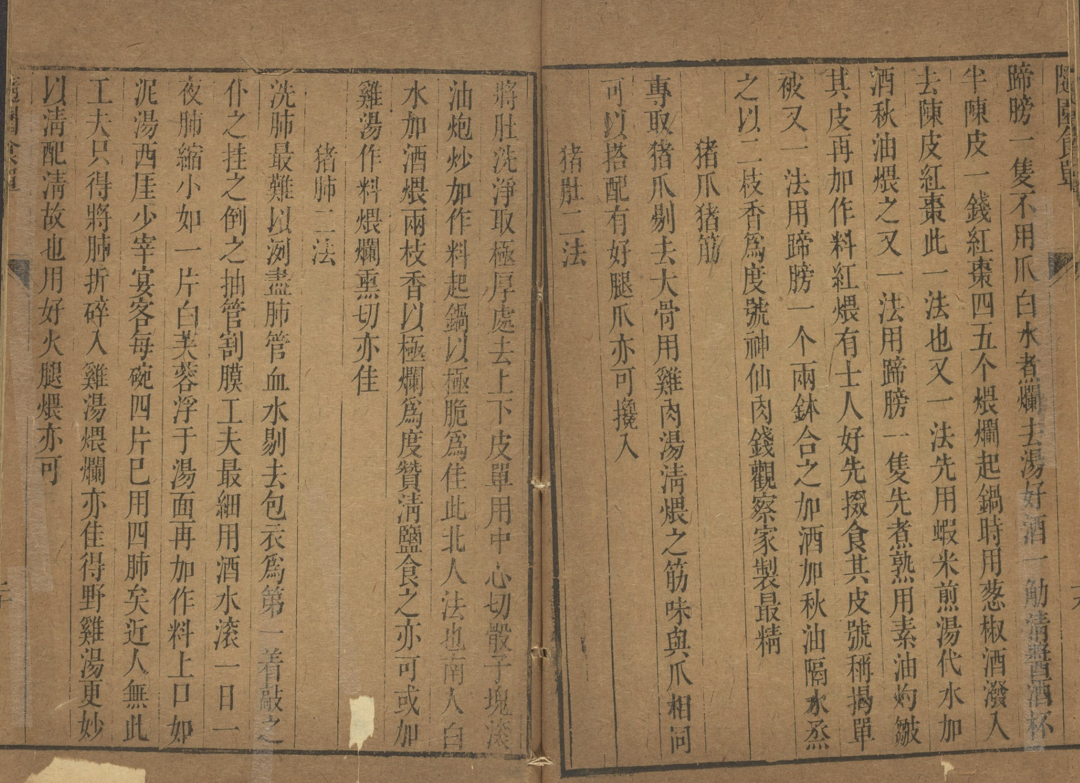 隨園食單
蹄膀一隻不用爪白水煮爛去湯好酒一觔清醬酒杯
半陳皮一錢紅棗四五个煨爛起鍋時用葱椒酒潑入
去陳皮紅棗此一法也又一法先用蝦米煎湯代水加
酒秋油煨之又一法用蹄膀一隻先煮熟用素油灼皺
其皮再加作料紅煨有士人好先掇食其皮號稱揭單
被又一法用蹄膀一个兩鉢合之加酒加秋油隔水蒸
之以二枝香為度號神仙肉錢觀察家製最精
猪爪猪筋
專取猪爪剔去大骨用雞肉湯清煨之筋味與爪相同
可以搭配有好腿爪亦可攙入
猪肚二法
將肚洗淨取極厚處去上下皮單用中心切骰子塊滚
油炮炒加作料起鍋以極脆為佳此北人法也南人白
水加酒煨兩枝香以極爛為度贊清鹽食之亦可或加
雞湯作料煨爛熏切亦佳
猪肺二法
洗肺最難以洌盡肺管血水剔去包衣為第一着敲之
仆之挂之倒之抽管割膜工夫最細用酒水滚一日一
夜肺縮小如一片白芙蓉浮于湯面再加作料上口如
泥湯西厓少宰宴客每碗四片已用四肺矣近人無此
工夫只得將肺折碎入雞湯煨爛亦佳得野雞湯更妙
以清配清故也用好火腿煨亦可